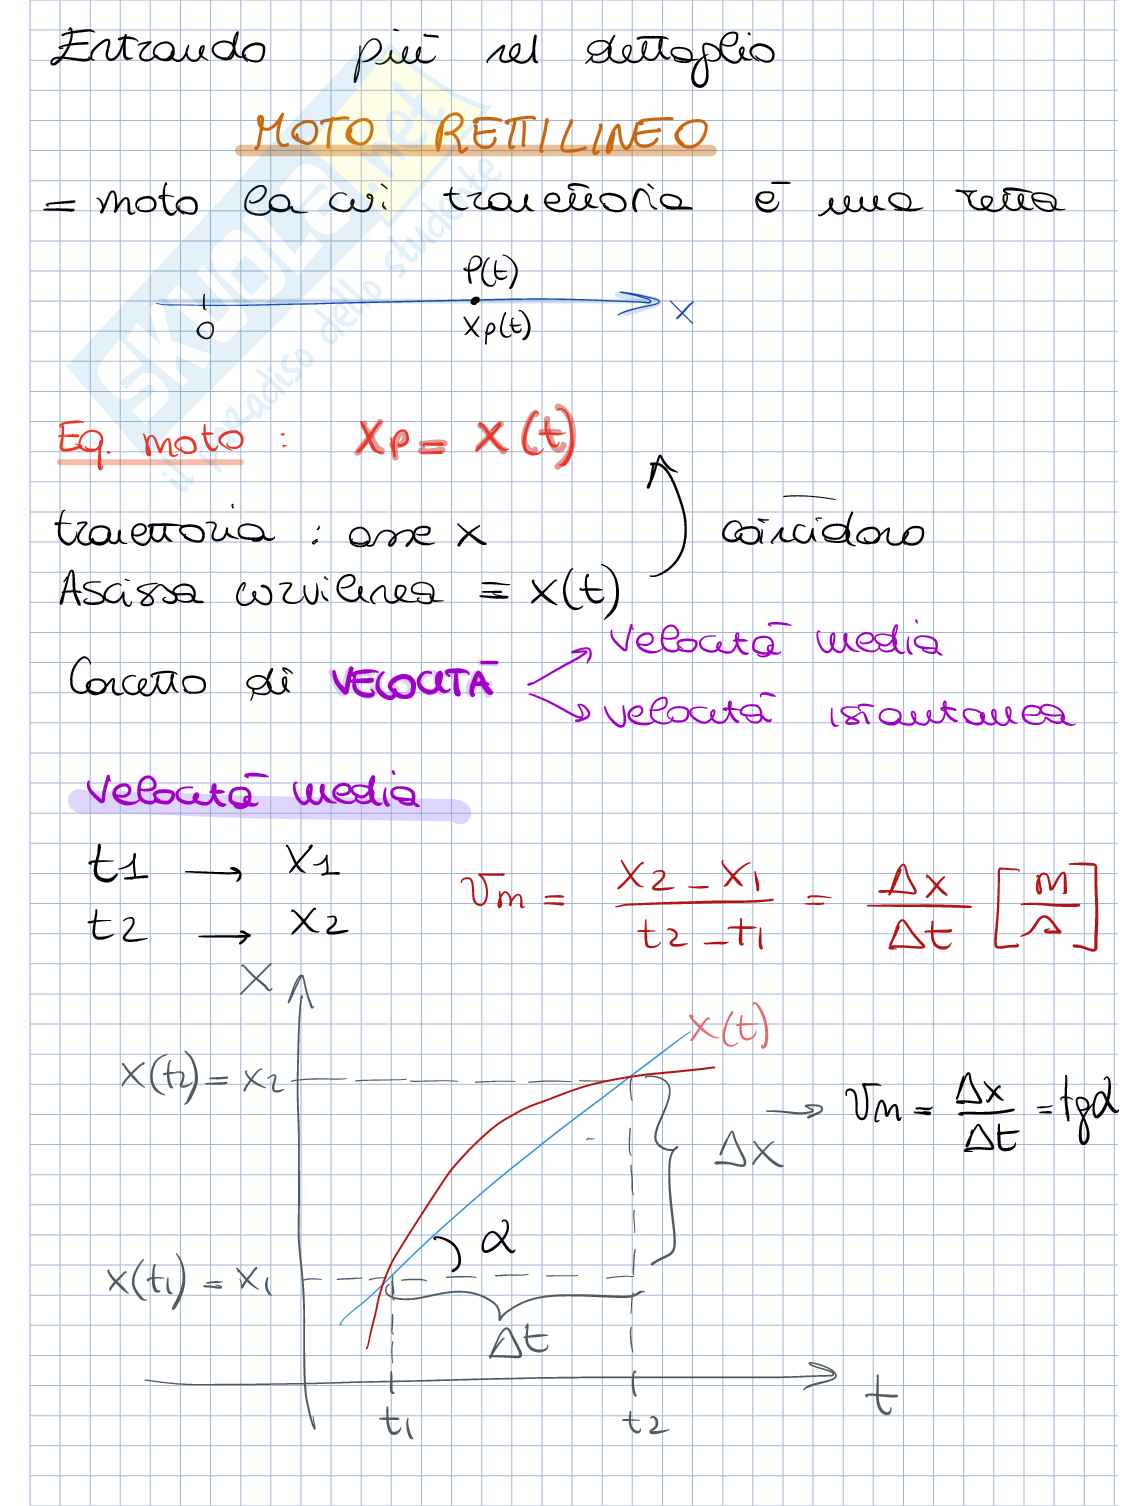 Entrando più nel dettaglio
MOTO RETTILINEO
= moto la cui traiettoria è una retta
P(t)
0
Xp(t)
X
Eq. moto : Xp = X(t)
traiettoria : asse X
coincidono
Ascissa curvilinea ≡ X(t)
Concetto di VELOCITÀ
velocità media
velocità istantanea
Velocità media
t1 → X1
t2 → X2
Vm = X2 - X1 / t2 - t1 = Δx / Δt [m/s]
X
X(t)
X(t2) = X2
Δx
→ Vm = Δx / Δt = tgα
α
X(t1) = X1
Δt
t
t1
t2
SKUOLA.net
il paradiso dello studente